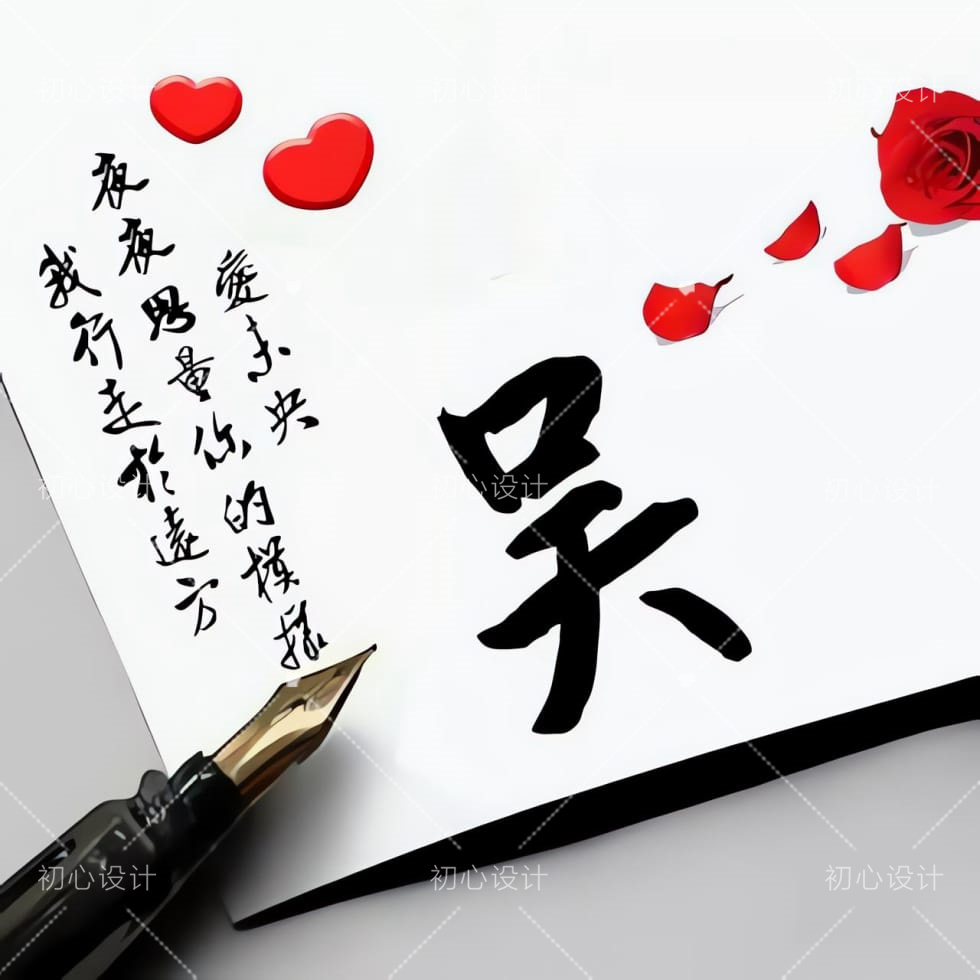 初心设计
初心设计
初心设计
吴
愛未央
夜夜思量你的模樣
我行走於遠方
初心设计
初心设计
初心设计
初心设计
初心设计
初心设计